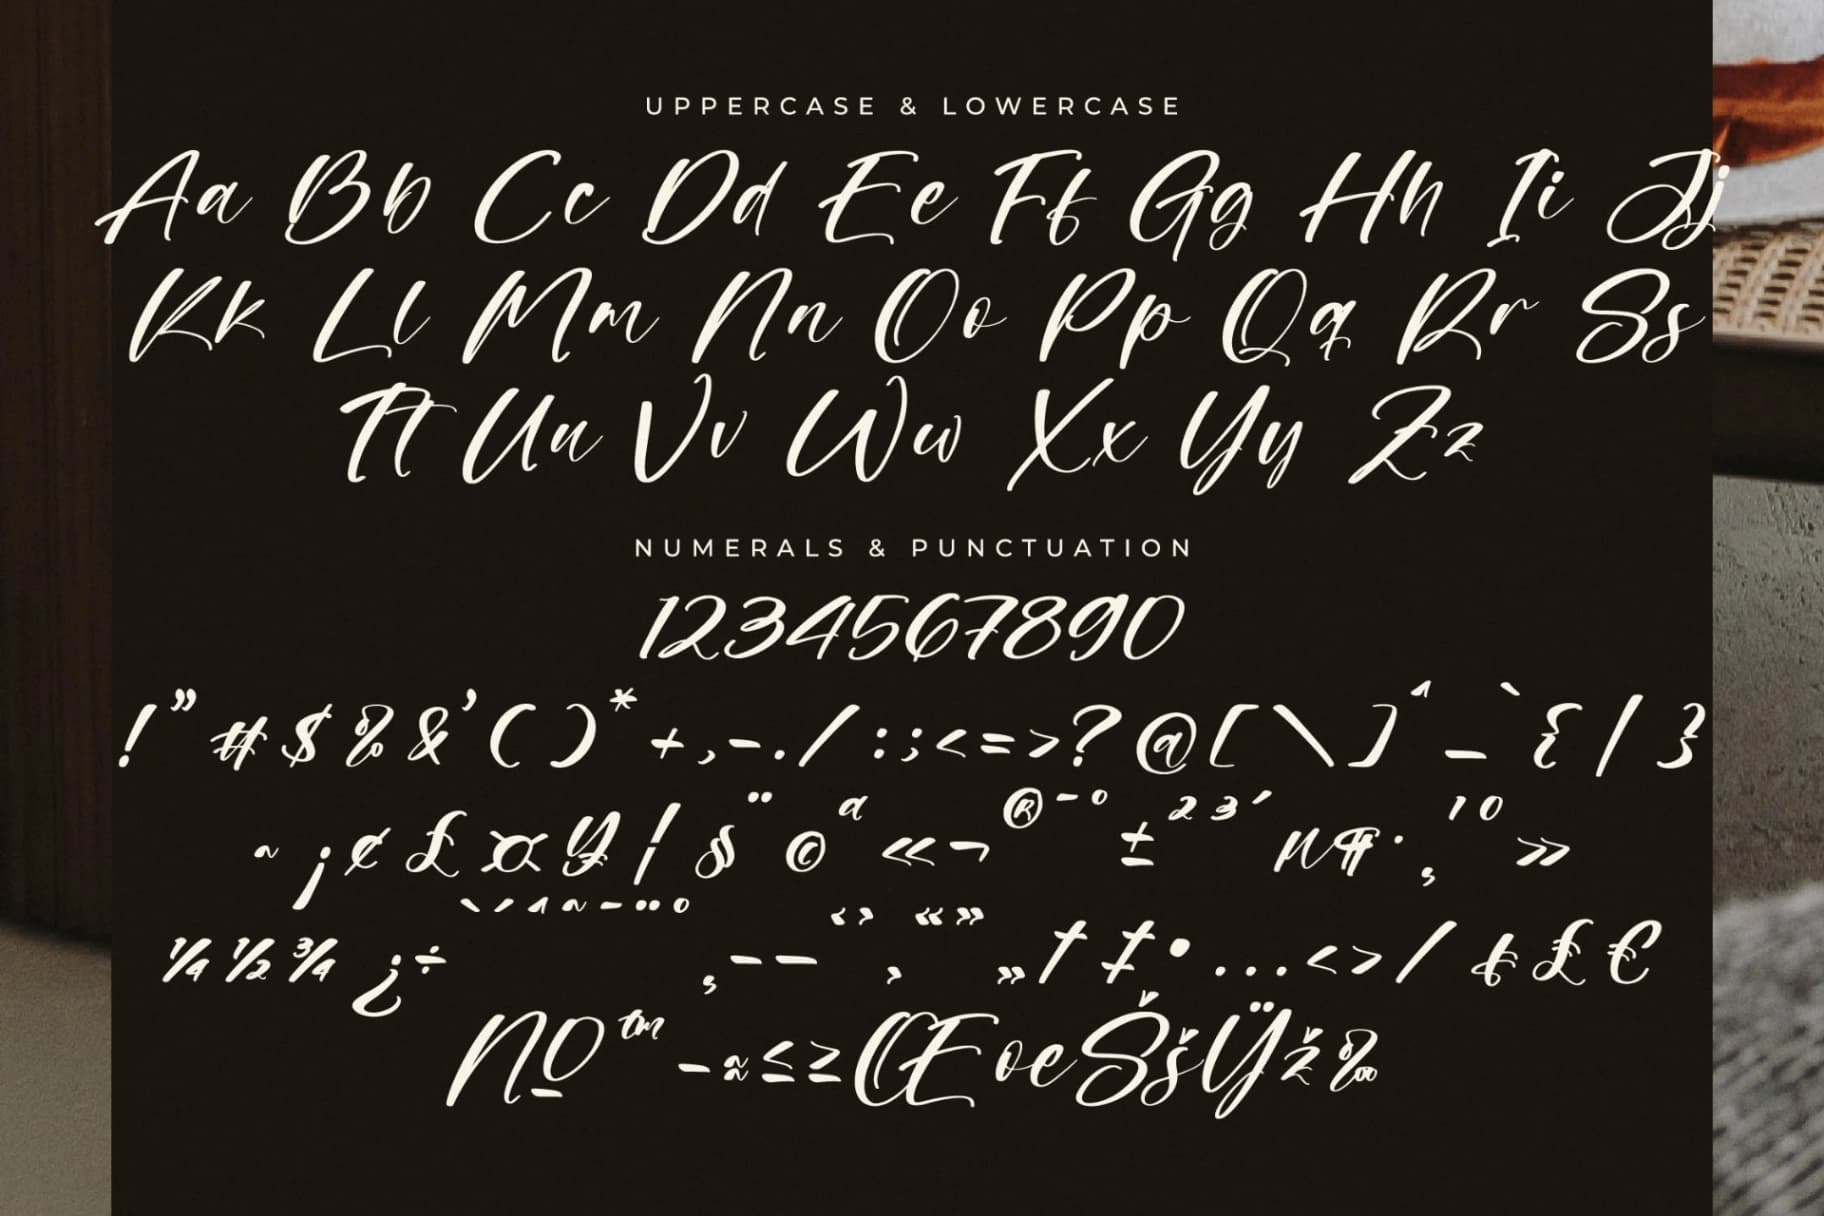 UPPERCASE & LOWERCASE
Aa Bb Cc Dd Ee Ff Gg Hh Ii Jj
Kk Ll Mm Nn Oo Pp Qq Rr Ss
Tt Uu Vv Ww Xx Yy Zz
NUMERALS & PUNCTUATION
1234567890
!"#$%&'()*+,-./:;<=>?@[\]^_`{|}
~¡¢£¤¥¦§¨©ª«¬®¯°±²³´µ¶·¸¹º»
¼½¾¿÷ˋˊˆ˜¯¨˚‚–—‘’‚“”„†‡•…‹›⁄₺₤€
№™−≈≤≥ŒœŠšŸž‰